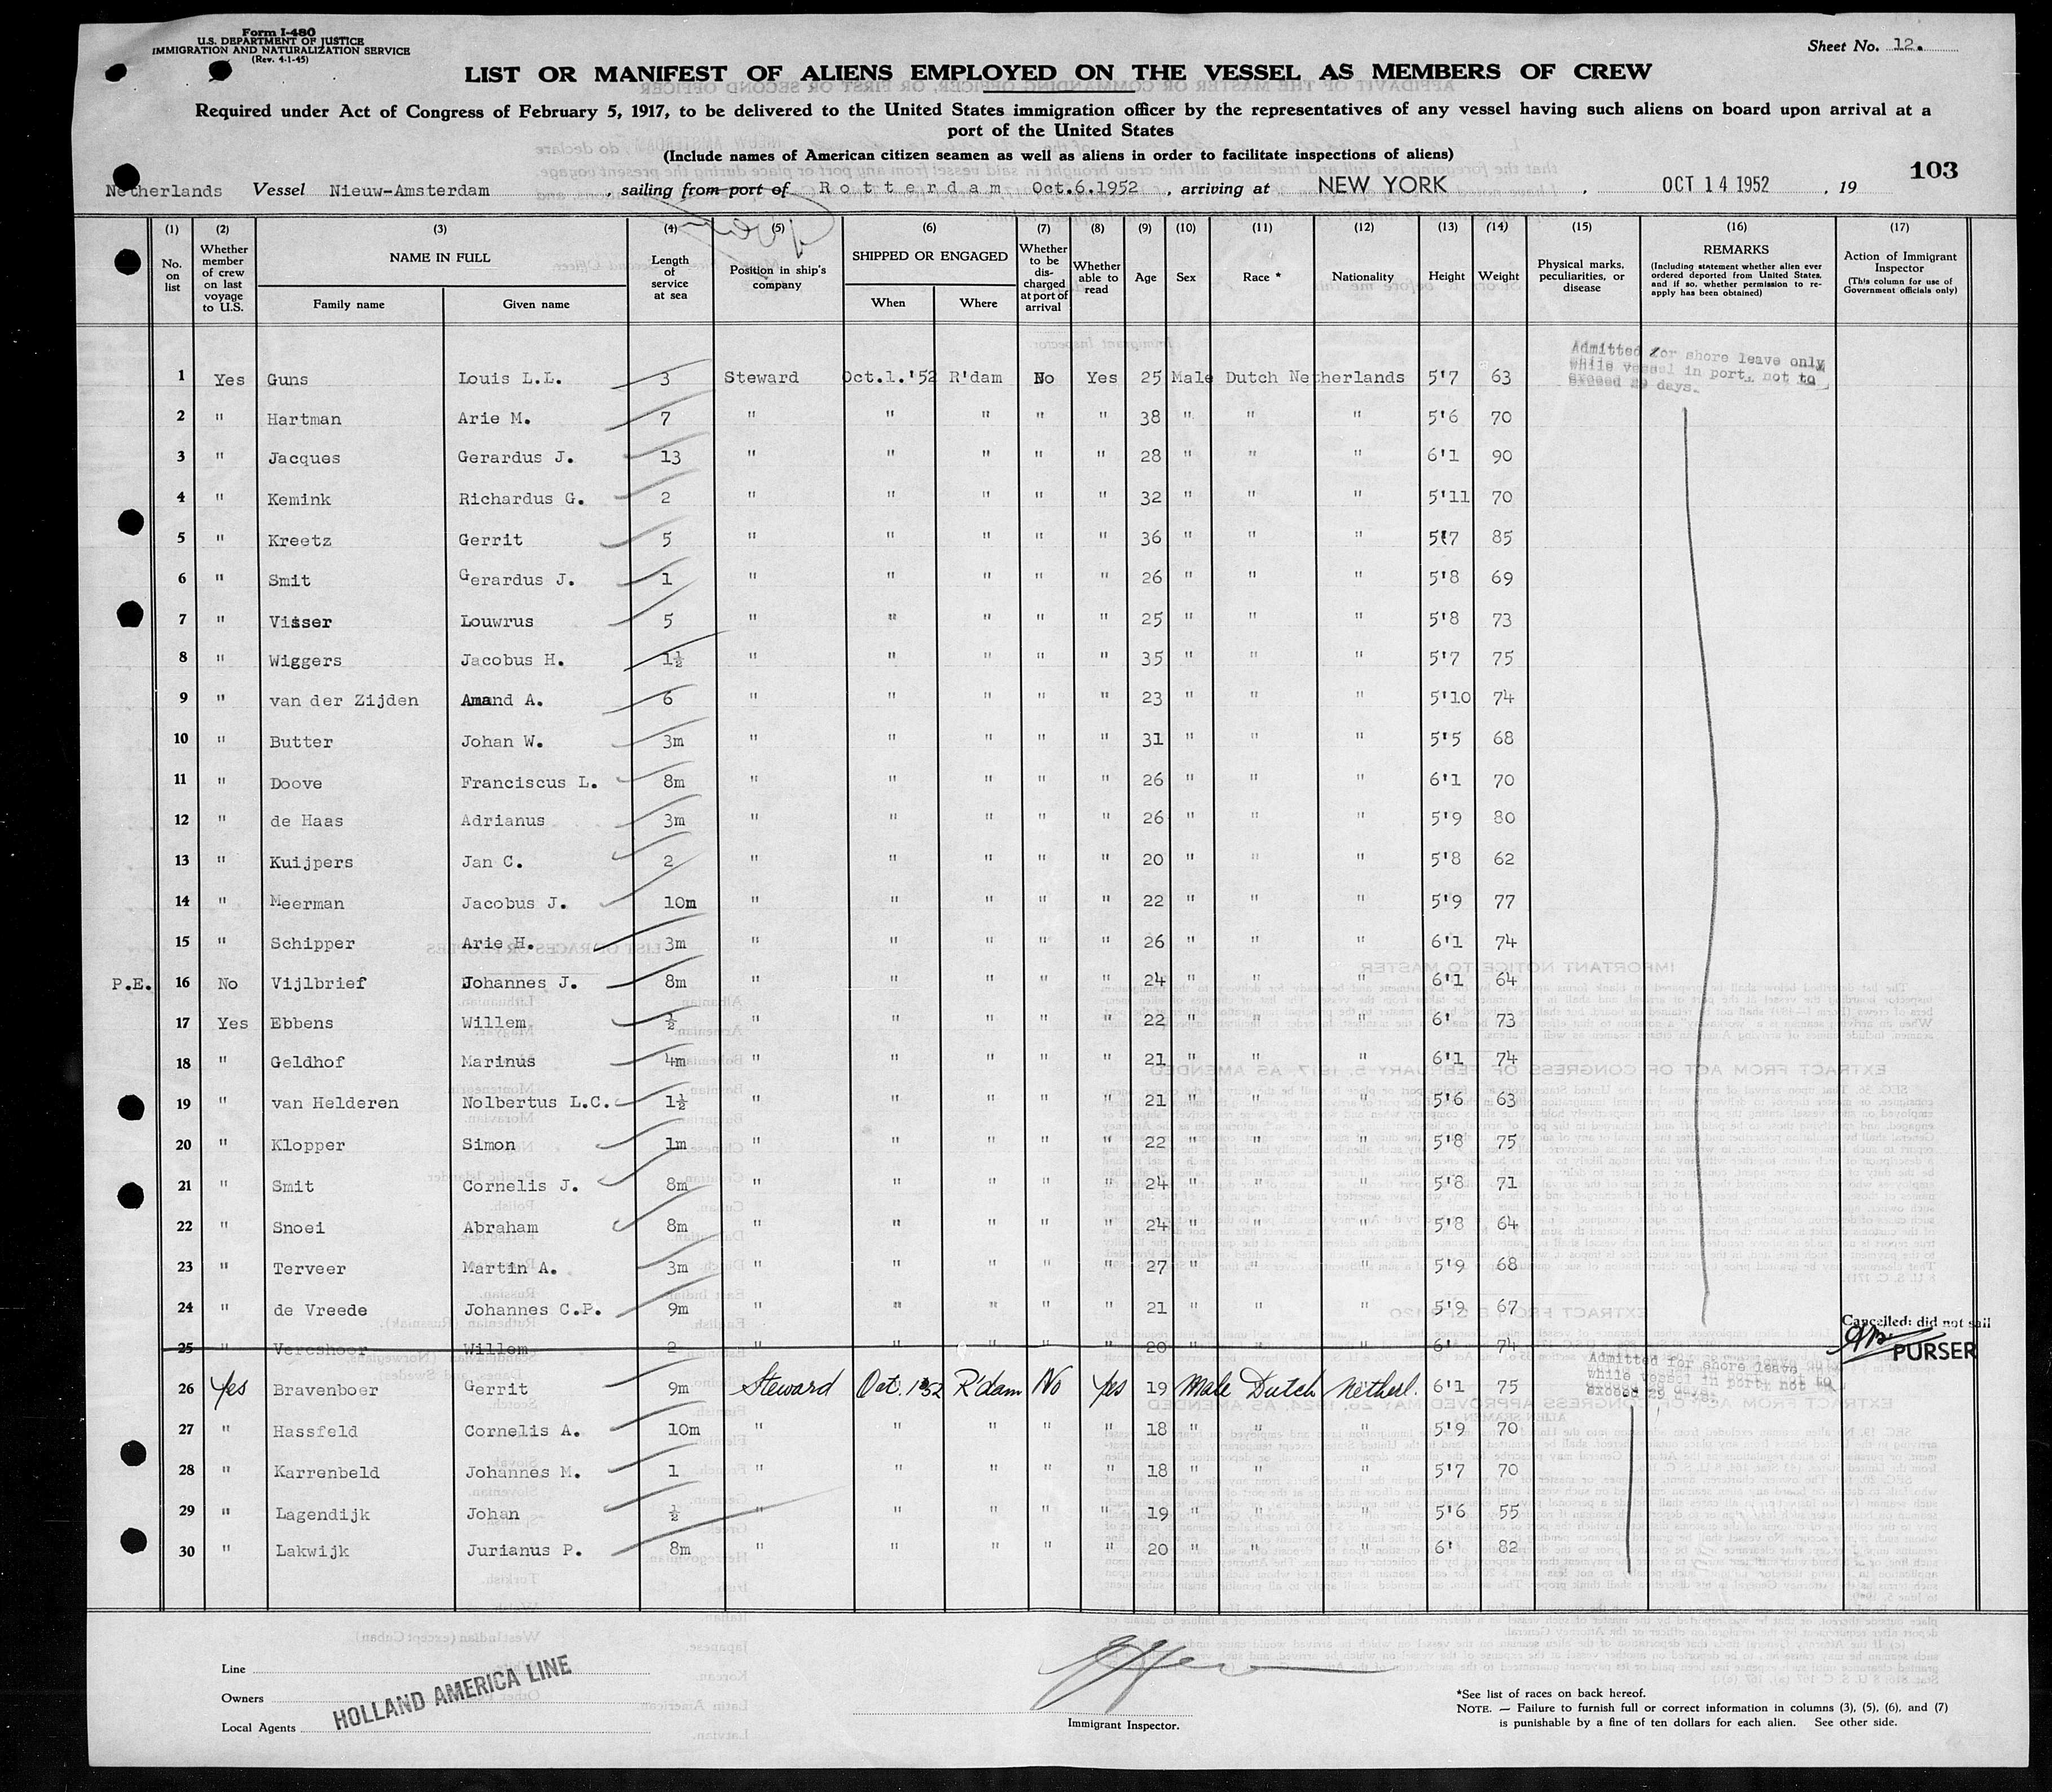 Form I-480
U.S. DEPARTMENT OF JUSTICE
IMMIGRATION AND NATURALIZATION SERVICE
(Rev. 4-1-45)
Sheet No. 12.
LIST OR MANIFEST OF ALIENS EMPLOYED ON THE VESSEL AS MEMBERS OF CREW
Required under Act of Congress of February 5, 1917, to be delivered to the United States immigration officer by the representatives of any vessel having such aliens on board upon arrival at a
port of the United States
(Include names of American citizen seamen as well as aliens in order to facilitate inspections of aliens)
103
Netherlands Vessel Nieuw-Amsterdam, sailing from port of Rotterdam Oct.6.1952, arriving at NEW YORK, OCT 14 1952, 19
(1) (2) (3) (4) (5) (6) (7) (8) (9) (10) (11) (12) (13) (14) (15) (16) (17)
No. on list
Whether member of crew on last voyage to U.S.
NAME IN FULL
Family name
Given name
Length of service at sea
Position in ship's company
SHIPPED OR ENGAGED
When
Where
Whether to be discharged at port of arrival
Whether able to read
Age
Sex
Race *
Nationality
Height
Weight
Physical marks, peculiarities, or disease
REMARKS
(Including statement whether alien ever ordered deported from United States, and if so, whether permission to reapply has been obtained)
Action of Immigrant Inspector
(This column for use of Government officials only)
Admitted for shore leave only
while vessel in port, not to
exceed 29 days.
1 Yes Guns Louis L.L. 3 Steward Oct.1.'52 R'dam No Yes 25 Male Dutch Netherlands 5'7 63
2 " Hartman Arie M. 7 " " " " " 38 " " " 5'6 70
3 " Jacques Gerardus J. 13 " " " " " 28 " " " 6'1 90
4 " Kemink Richardus G. 2 " " " " " 32 " " " 5'11 70
5 " Kreetz Gerrit 5 " " " " " 36 " " " 5'7 85
6 " Smit Gerardus J. 1 " " " " " 26 " " " 5'8 69
7 " Visser Louwrus 5 " " " " " 25 " " " 5'8 73
8 " Wiggers Jacobus H. 1½ " " " " " 35 " " " 5'7 75
9 " van der Zijden Amand A. 6 " " " " " 23 " " " 5'10 74
10 " Butter Johan W. 3m " " " " " 31 " " " 5'5 68
11 " Doove Franciscus L. 8m " " " " " 26 " " " 6'1 70
12 " de Haas Adrianus 3m " " " " " 26 " " " 5'9 80
13 " Kuijpers Jan C. 2 " " " " " 20 " " " 5'8 62
14 " Meerman Jacobus J. 10m " " " " " 22 " " " 5'9 77
15 " Schipper Arie H. 3m " " " " " 26 " " " 6'1 74
P.E. 16 No Vijlbrief Johannes J. 8m " " " " " 24 " " " 6'1 64
17 Yes Ebbens Willem ½ " " " " " 22 " " " 6' 73
18 " Geldhof Marinus 4m " " " " " 21 " " " 6'1 74
19 " van Helderen Nolbertus L.C. 1½ " " " " " 21 " " " 5'6 63
20 " Klopper Simon 1m " " " " " 22 " " " 5'8 75
21 " Smit Cornelis J. 8m " " " " " 24 " " " 5'8 71
22 " Snoei Abraham 8m " " " " " 24 " " " 5'8 64
23 " Terveer Martin A. 3m " " " " " 27 " " " 5'9 68
24 " de Vreede Johannes C.P. 9m " " " " " 21 " " " 5'9 67
Cancelled: did not sail
25 " Willem 2 " " " " " 20 " " " 6'1 74
PURSER
Admitted for shore leave
while vessel in port, not to
exceed 29 days.
26 Yes Bravenboer Gerrit 9m Steward Oct. 1 '52 R'dam No Yes 19 Male Dutch Netherl. 6'1 75
27 " Hassfeld Cornelis A. 10m " " " " " 18 " " " 5'9 70
28 " Karrenbeld Johannes M. 1 " " " " " 18 " " " 5'7 70
29 " Lagendijk Johan ½ " " " " " 19 " " " 5'6 55
30 " Lakwijk Jurianus P. 8m " " " " " 20 " " " 6' 82
Line
Owners
Local Agents
HOLLAND AMERICA LINE
Immigrant Inspector.
*See list of races on back hereof.
NOTE. — Failure to furnish full or correct information in columns (3), (5), (6), and (7)
is punishable by a fine of ten dollars for each alien. See other side.